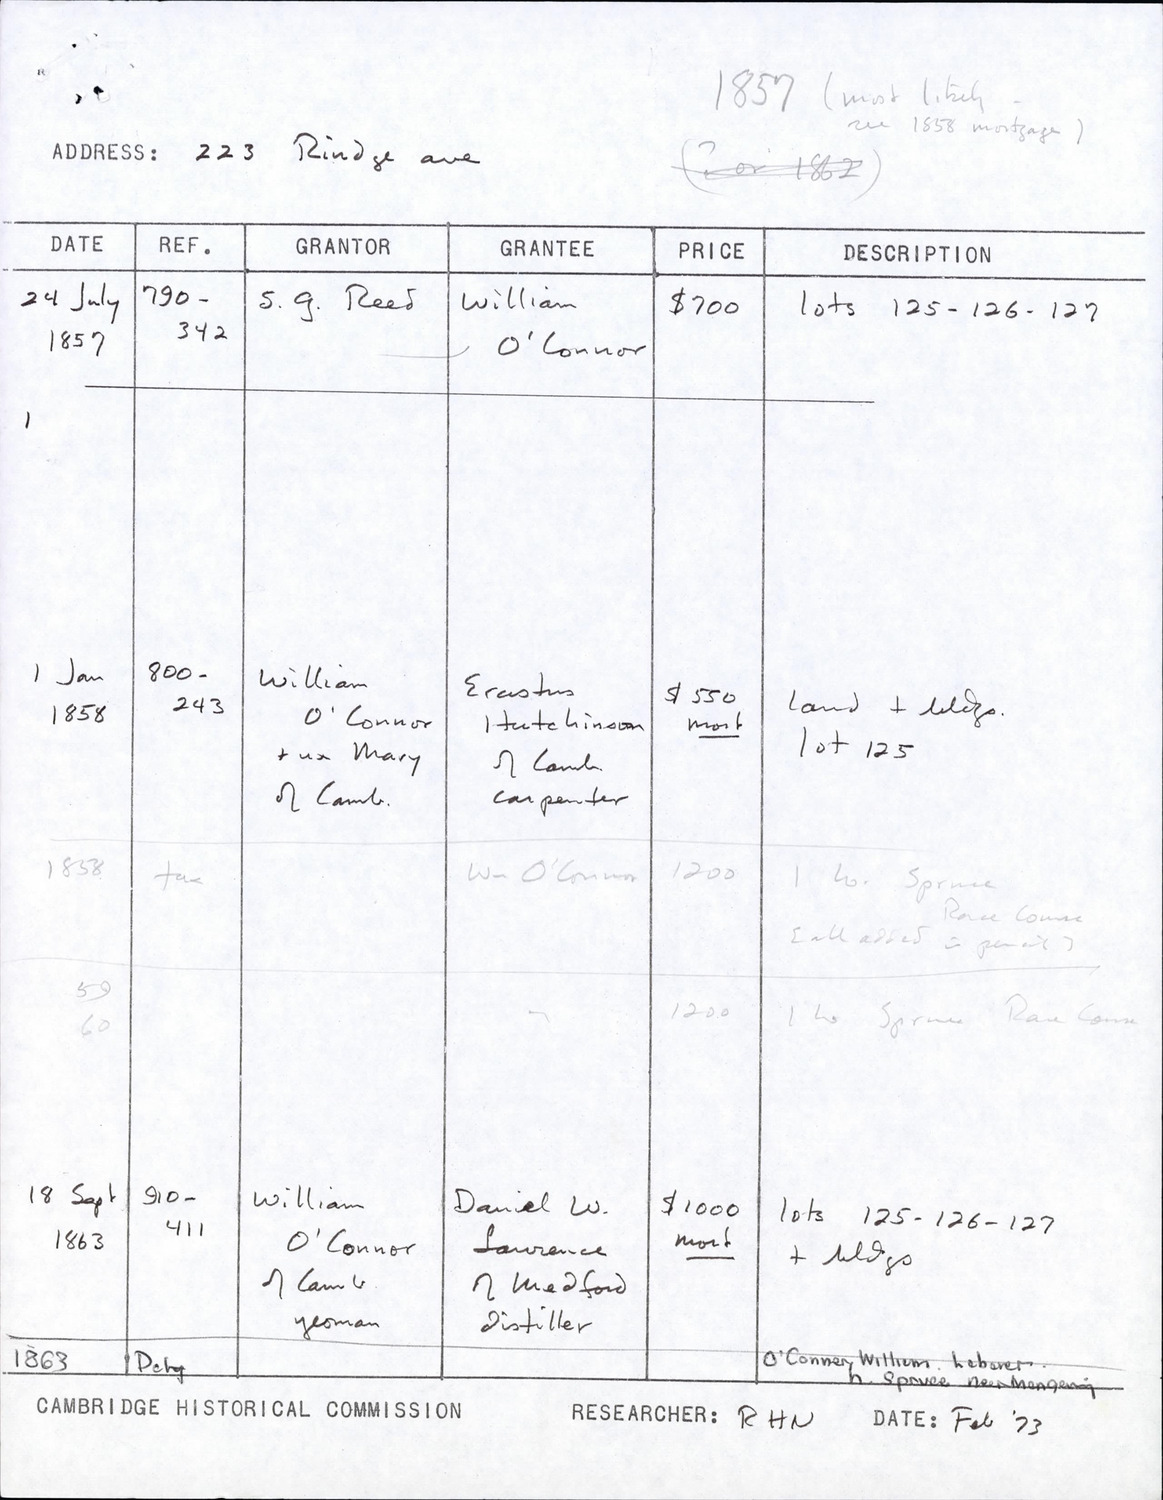 1857 (most likely -
see 1858 mortgage)
(? or 1862)
ADDRESS: 223 Rindge ave
DATE REF. GRANTOR GRANTEE PRICE DESCRIPTION
24 July 790- S. G. Reed William $700 lots 125-126-127
1857 342 O'Connor
1
1 Jan 800- William Erastus $550 land + bldgs.
1858 243 O'Connor Hutchinson mort lot 125
+ ux Mary of Camb.
of Camb. carpenter
1858 tax Wm O'Connor 1200 1 ho. Spruce
Race Course
[all added in pencil]
59
60 " 1200 1 ho Spruce Race Course
18 Sept 910- William Daniel W. $1000 lots 125-126-127
1863 411 O'Connor Lawrence mort + bldgs
of Camb. of Medford
yeoman distiller
1863 O'Conner, William. laborer.
h. Spruce near
CAMBRIDGE HISTORICAL COMMISSION RESEARCHER: RHN DATE: Feb '73